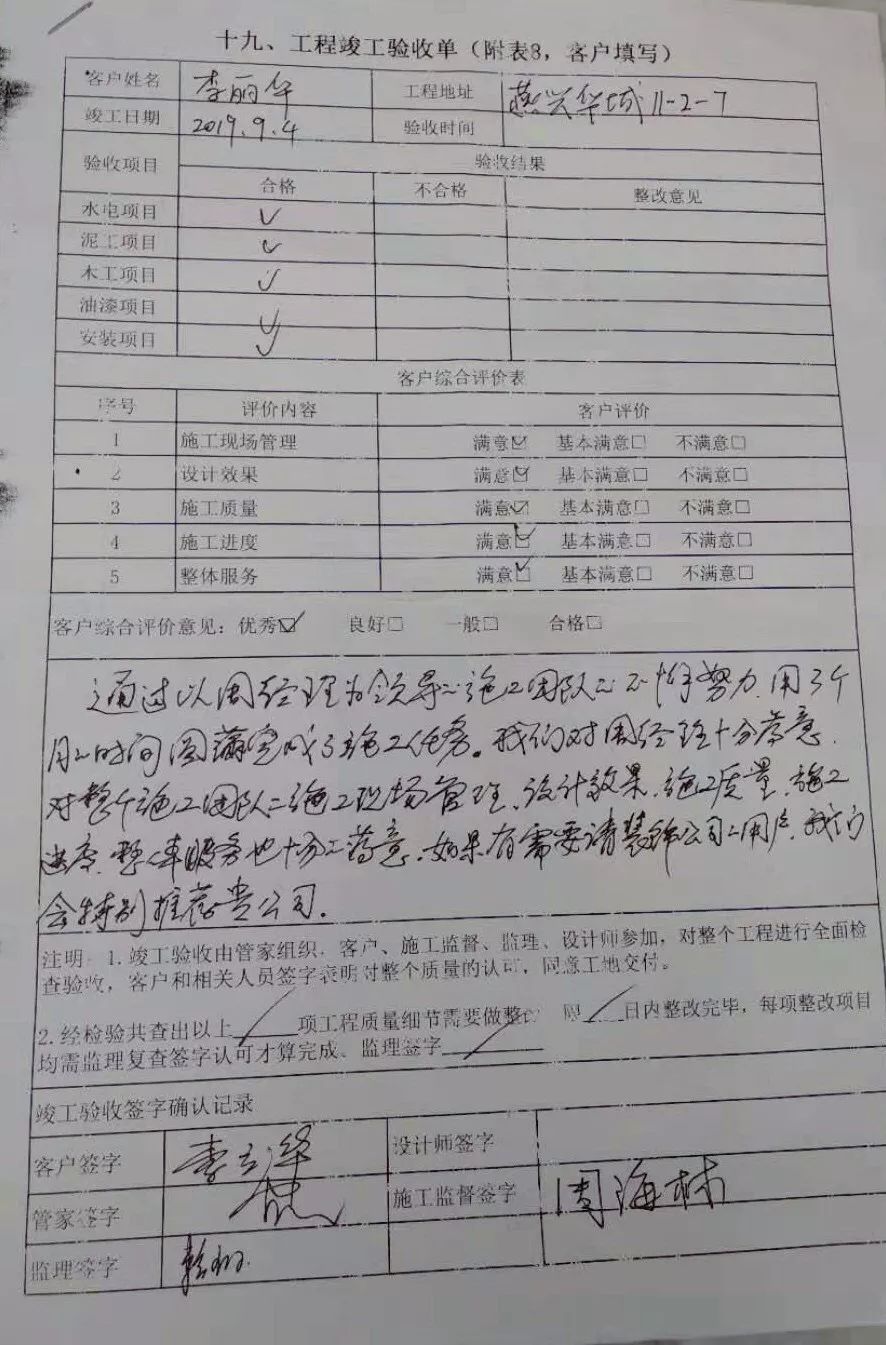 十九、工程竣工验收单（附表8，客户填写）
客户姓名 李丽华 工程地址 燕兴华城11-2-7
竣工日期 2019.9.4 验收时间
验收项目 验收结果
合格 不合格 整改意见
水电项目 ✓
泥工项目 ✓
木工项目 ✓
油漆项目 ✓
安装项目 ✓
客户综合评价表
序号 评价内容 客户评价
1 施工现场管理 满意☑ 基本满意□ 不满意□
2 设计效果 满意☑ 基本满意□ 不满意□
3 施工质量 满意☑ 基本满意□ 不满意□
4 施工进度 满意☑ 基本满意□ 不满意□
5 整体服务 满意☑ 基本满意□ 不满意□
客户综合评价意见：优秀☑ 良好□ 一般□ 合格□
通过以周经理为领导的施工团队的不懈努力，用3个
月的时间圆满完成了施工任务。我们对周经理十分满意，
对整个施工团队的施工现场管理、设计效果、施工质量、施工
进度、整体服务也十分的满意，如果有需要请装饰公司的用户，我们
会特别推荐贵公司。
注明：1.竣工验收由管家组织，客户、施工监督、监理、设计师参加，对整个工程进行全面检
查验收，客户和相关人员签字表明对整个质量的认可，同意工地交付。
2.经检验共查出以上 / 项工程质量细节需要做整 / 日内整改完毕，每项整改项目
均需监理复查签字认可才算完成、监理签字 /
竣工验收签字确认记录
客户签字 李丽华 设计师签字
管家签字 施工监督签字 周海林
监理签字